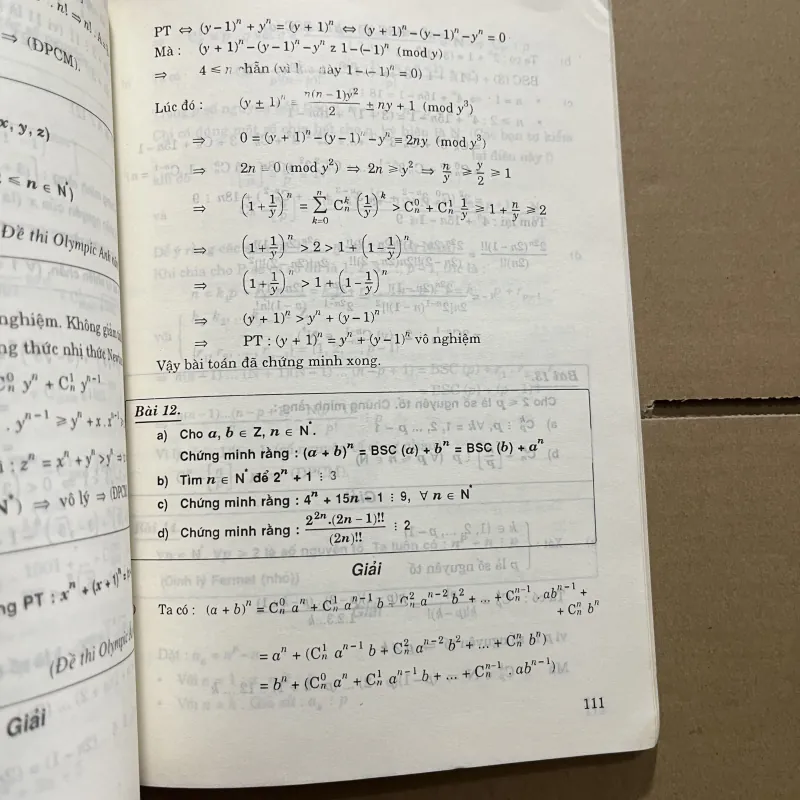 . h! ⇒ n! . h+
⇒ (ĐPCM).
x, y, z)
≤ n ∈ N*)
Đề thi Olympic Anh
nghiệm. Không giảm
ng thức nhị thức New
C⁰ₙ yⁿ + C¹ₙ yⁿ⁻¹
. yⁿ⁻¹ ≥ yⁿ + x . xⁿ⁻¹
: zⁿ = xⁿ + yⁿ > yⁿ
N*) ⇒ vô lý ⇒ (ĐPCM
ng PT : xⁿ + (x + 1)ⁿ =
(Đề thi Olympic
Giải
PT ⇔ (y − 1)ⁿ + yⁿ = (y + 1)ⁿ ⇔ (y + 1)ⁿ − (y − 1)ⁿ − yⁿ = 0
Mà : (y + 1)ⁿ − (y − 1)ⁿ − yⁿ z 1 − (− 1)ⁿ (mod y)
⇒ 4 ≤ n chẵn (vì này 1 − (− 1)ⁿ = 0)
Lúc đó : (y ± 1)ⁿ ≡ n(n − 1)y²/2 ± ny + 1 (mod y³)
⇒ 0 = (y + 1)ⁿ − (y − 1)ⁿ − yⁿ ≡ 2ny (mod y³)
⇒ 2n ≡ 0 (mod y²) ⇒ 2n ≥ y² ⇒ n/y ≥ y/2 ≥ 1
⇒ (1 + 1/y)ⁿ = ∑ₖ₌₀ⁿ Cₙᵏ (1/y)ᵏ > Cₙ⁰ + Cₙ¹ 1/y ≥ 1 + n/y ≥ 2
⇒ (1 + 1/y)ⁿ > 2 > 1 + (1 − 1/y)ⁿ
⇒ (1 + 1/y)ⁿ > 1 + (1 − 1/y)ⁿ
⇒ (y + 1)ⁿ > yⁿ + (y − 1)ⁿ
⇒ PT : (y + 1)ⁿ = yⁿ + (y − 1)ⁿ vô nghiệm
Vậy bài toán đã chứng minh xong.
Bài 12.
a) Cho a, b ∈ Z, n ∈ N*.
Chứng minh rằng : (a + b)ⁿ = BSC (a) + bⁿ = BSC (b) + aⁿ
b) Tìm n ∈ N* để 2ⁿ + 1 ⋮ 3
c) Chứng minh rằng : 4ⁿ + 15n − 1 ⋮ 9, ∀ n ∈ N*
d) Chứng minh rằng : 2²ⁿ.(2n − 1)!!/(2n)!! ⋮ 2
Giải
Ta có : (a + b)ⁿ = Cₙ⁰ aⁿ + Cₙ¹ aⁿ⁻¹ b + Cₙ² aⁿ⁻² b² + ... + Cₙⁿ⁻¹ . abⁿ⁻¹ +
+ Cₙⁿ bⁿ
= aⁿ + (Cₙ¹ aⁿ⁻¹ b + Cₙ² aⁿ⁻² b² + ... + Cₙⁿ bⁿ)
= bⁿ + (Cₙ⁰ aⁿ + Cₙ¹ aⁿ⁻¹ b + ... + Cₙⁿ⁻¹ . abⁿ⁻¹)
111